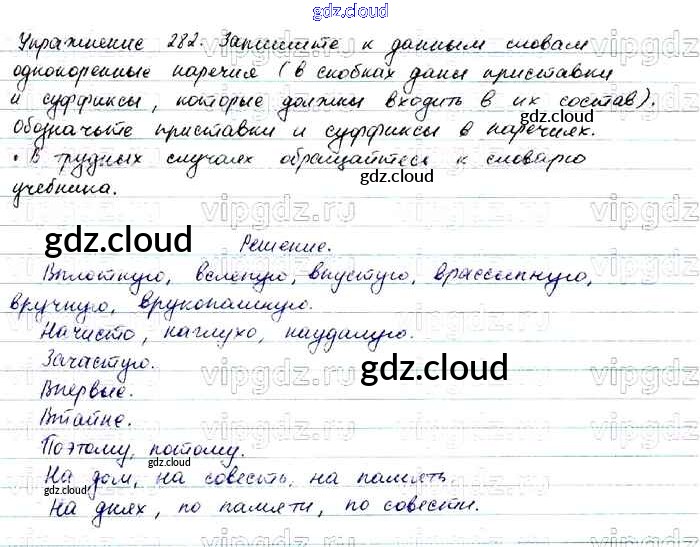 gdz.cloud
Упражнение 282. Запишите к данным словам
однокоренные наречия (в скобках даны приставки
и суффиксы, которые должны входить в их состав).
gdz.cloud
Обозначьте приставки и суффиксы в наречиях.
• В трудных случаях обращайтесь к словарю
gdz.cloud
учебника.
vipgdz.ru
gdz.cloud
Решение.
Вплотную, вслепую, впустую, врассыпную,
вручную, врукопашную.
Начисто, наглухо, наудалую.
Зачастую.
gdz.cloud
Впервые.
Втайне.
Поэтому, потому.
gdz.cloud
На дом, на совесть, на память.
gdz.cloud
На днях, по памяти, по совести.